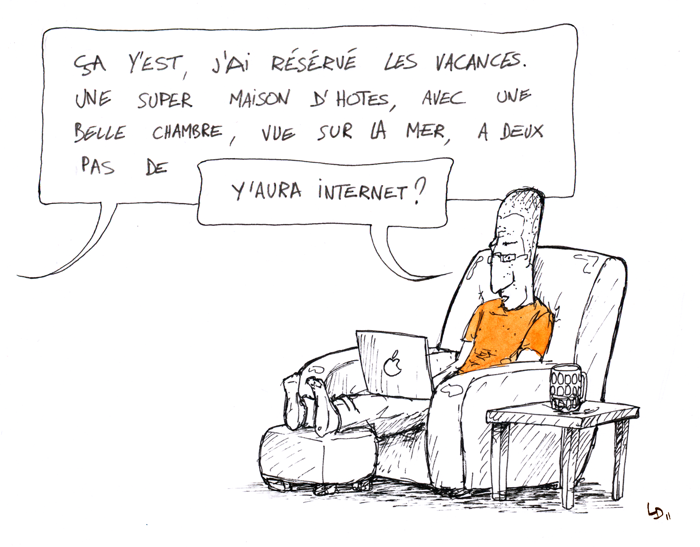 ÇA Y'EST, J'AI RÉSÉRVÉ LES VACANCES.
UNE SUPER MAISON D'HOTES, AVEC UNE
BELLE CHAMBRE, VUE SUR LA MER, A DEUX
PAS DE
Y'AURA INTERNET?
LD 11